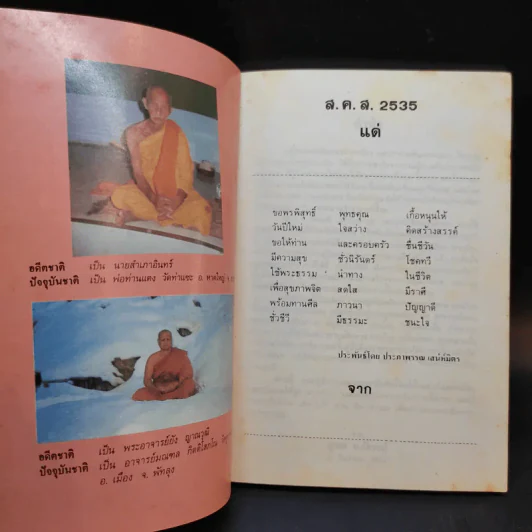 อดีตชาติ เป็น นายสำเภาอินทร์
ปัจจุบันชาติ เป็น พ่อท่านแดง วัดท่าแซะ อ. หาดใหญ่ จ.
อดีตชาติ เป็น พระอาจารย์ยัง ญาณวุฒิ
ปัจจุบันชาติ เป็น อาจารย์มณฑล
อ. เมือง จ. พัทลุง
ส.ค.ส. 2535
แด่
ขอพรพิสุทธิ์ พุทธคุณ เกื้อหนุนให้
วันปีใหม่ ใจสว่าง คิดสร้างสรรค์
ขอให้ท่าน และครอบครัว ชื่นชีวัน
มีความสุข ชั่วนิรันดร์ โชคทวี
ใช้พระธรรม นำทาง ในชีวิต
เพื่อสุขภาพจิต สดใส มีราศี
พร้อมทานศีล ภาวนา ปัญญาดี
ชั่วชีวี มีธรรมะ ชนะใจ
ประพันธ์โดย ประภาพรรณ เสน่ห์มิตร
จาก